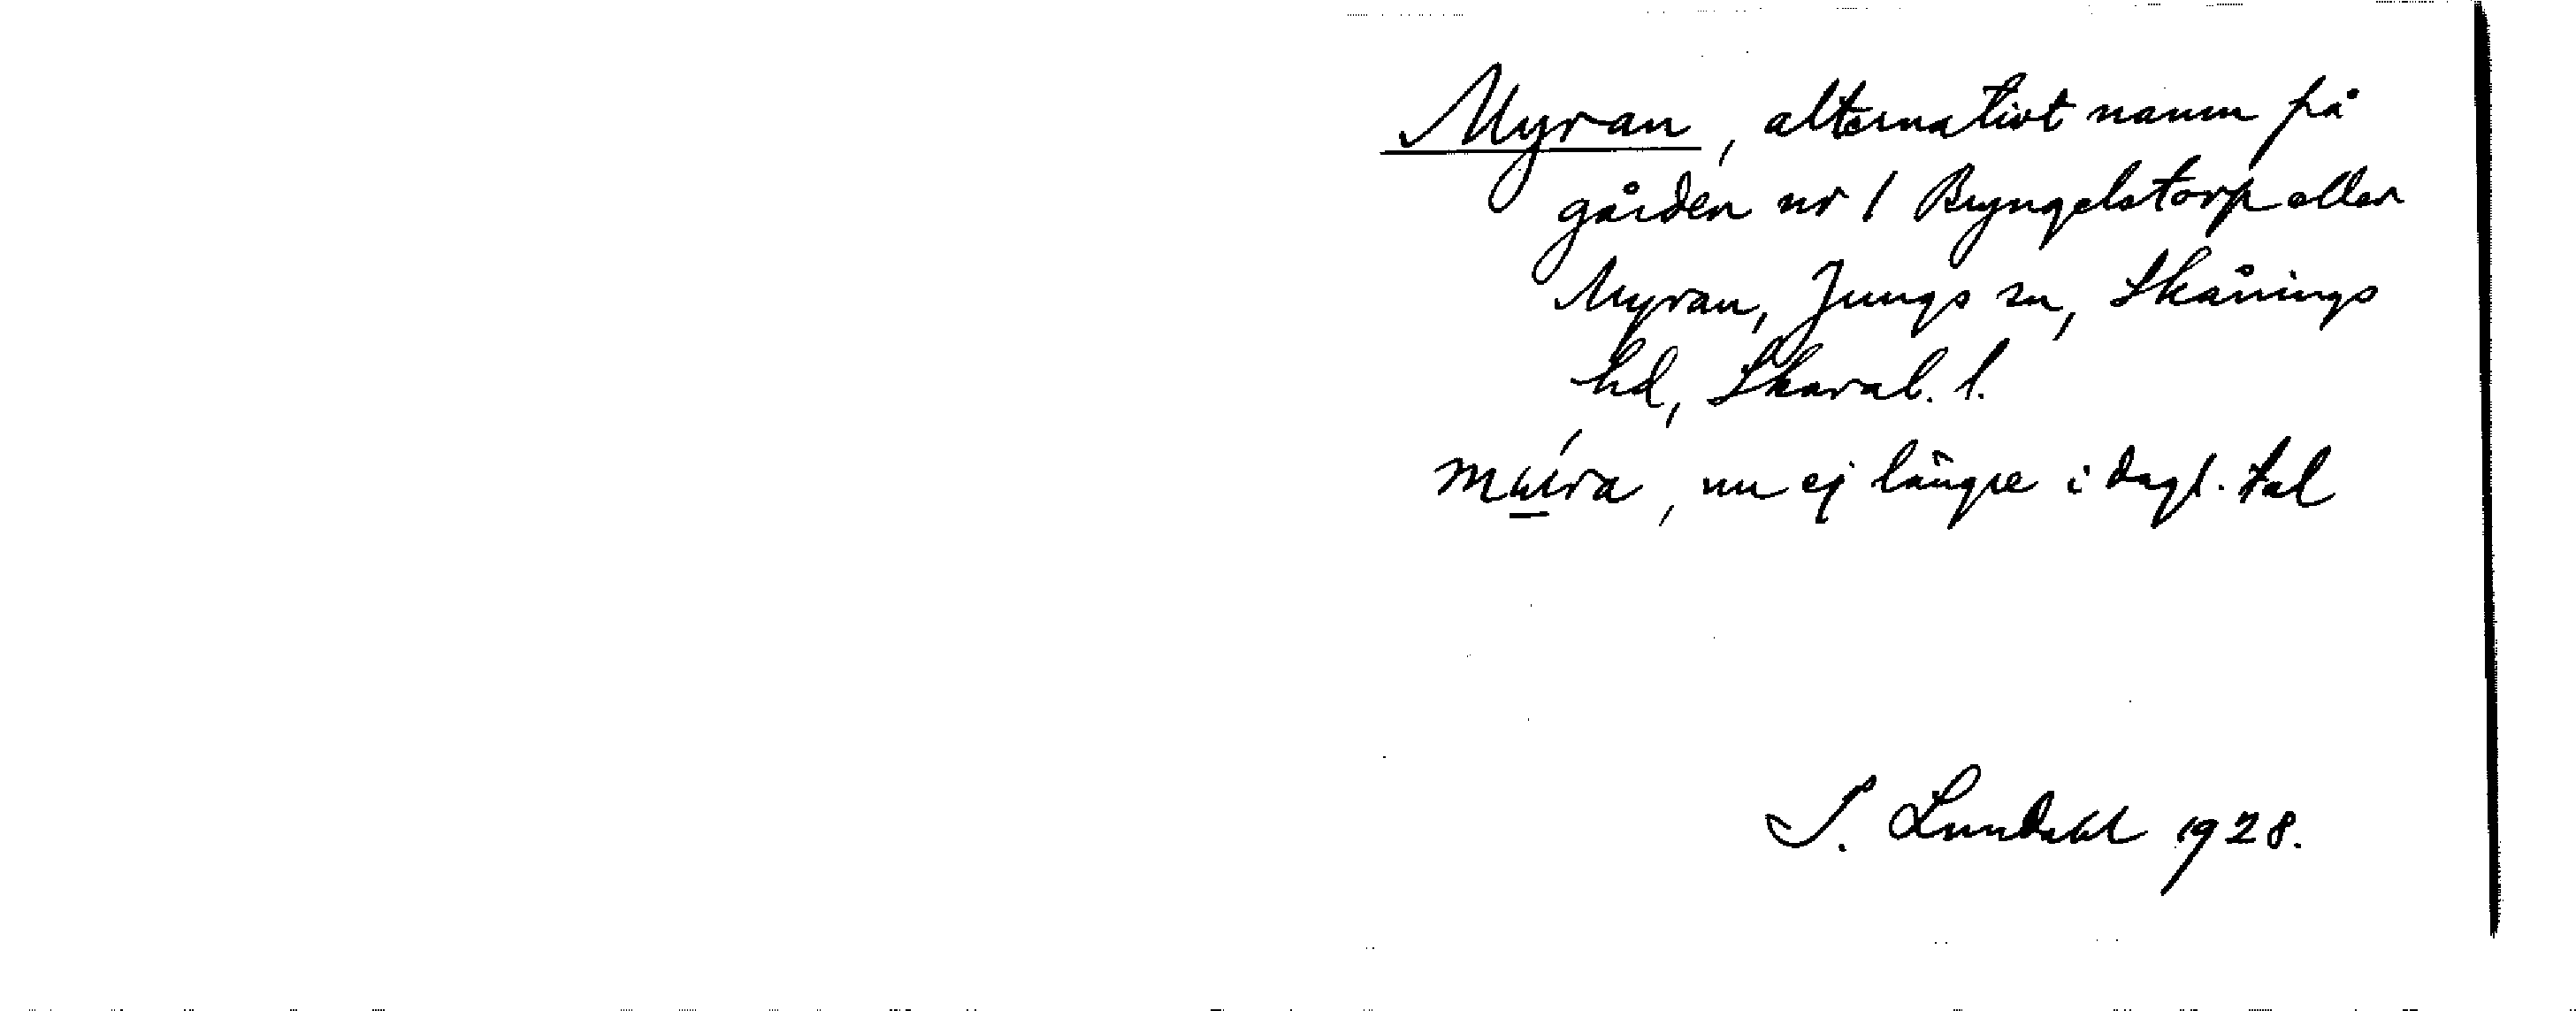 Myran, alternativt namn på
gården nr 1 Bryngelstorp eller
Myran, Jungs sn, Skånings
hd, Skarab. l.
, nu ej längre i dagl. tal
S. Lundahl 1928.